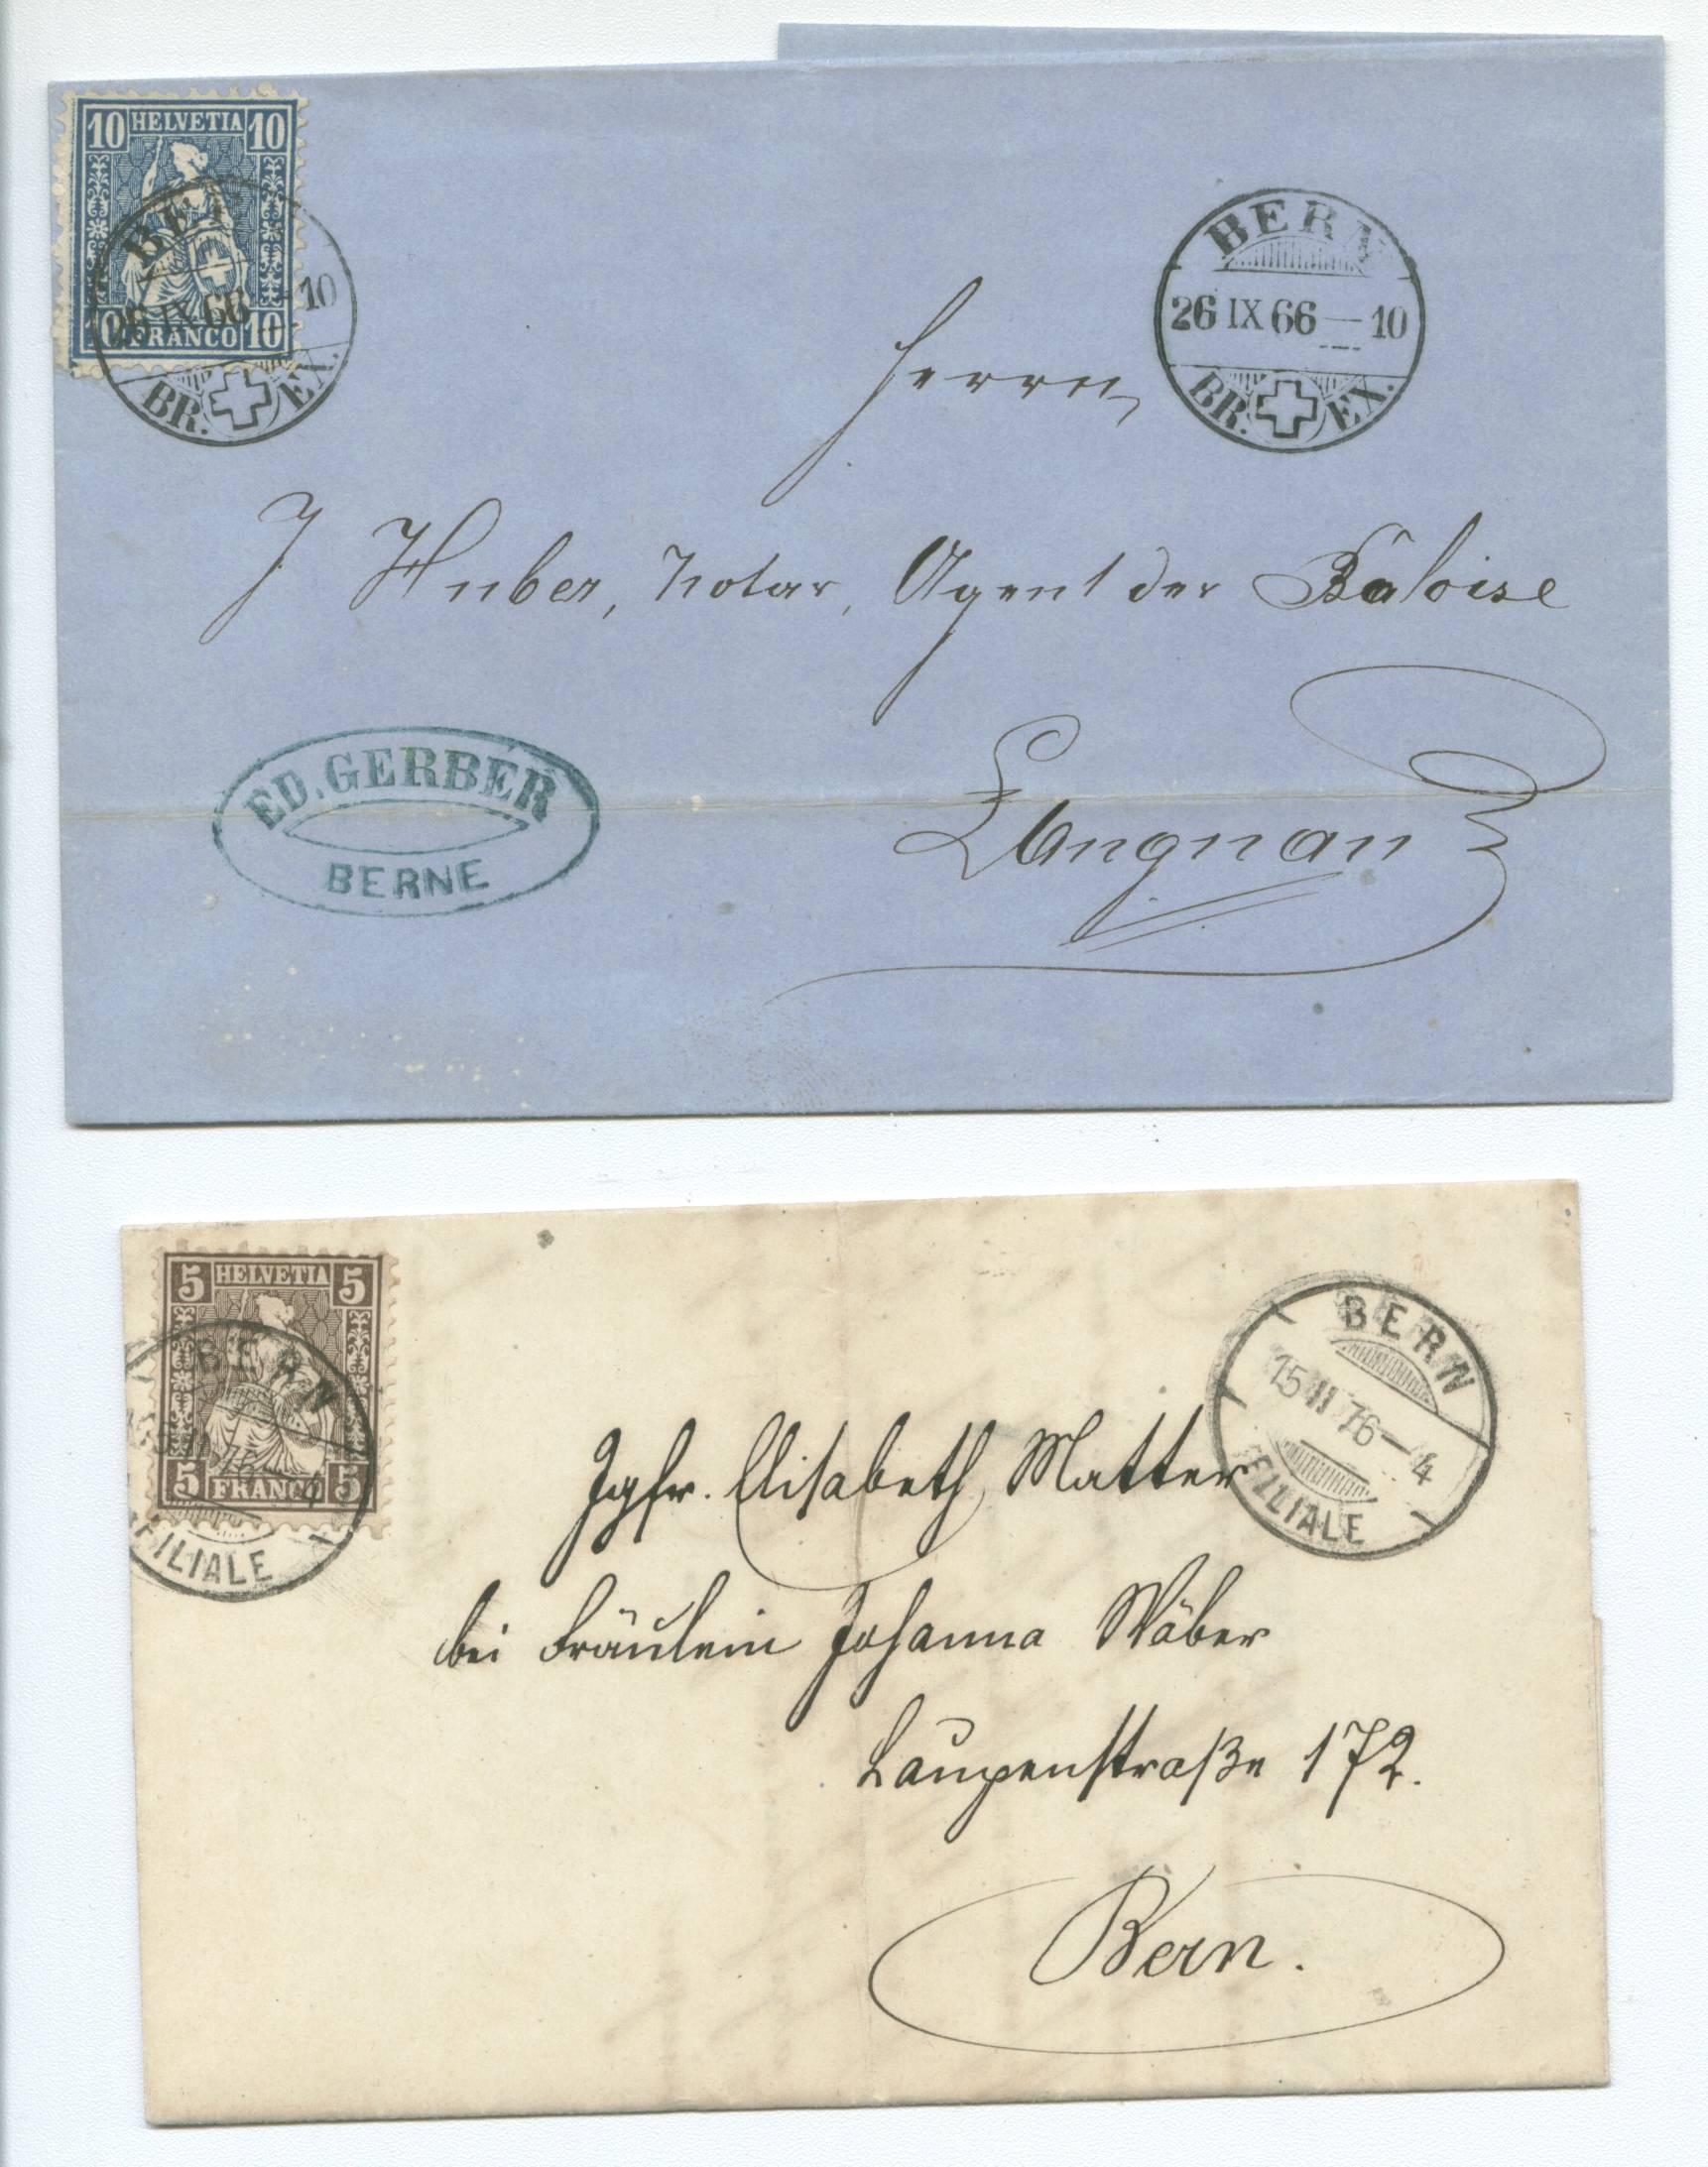 10 HELVETIA 10
10 FRANCO 10
BE
26 IX 66 - 10
BR. EX.
BERN
26 IX 66 - 10
BR. EX.
Herrn
J Huber, Notar, Agent der Bâloise
Langnau
ED. GERBER
BERNE
5 HELVETIA 5
5 FRANCO 5
BERN
76 - 4
FILIALE
BERN
15 II 76 - 4
FILIALE
Jgfr. Elisabeth Matter
bei Fräulein Johanna Wäber
Laupenstraße 172.
Bern.